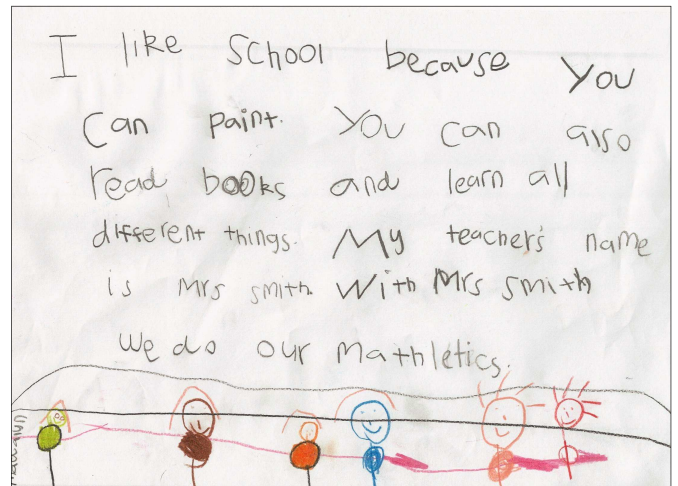 I like School because You
Can paint. You can also
read books and learn all
different things. My teacher's name
is Mrs smith. With Mrs smith
we do our mathletics.